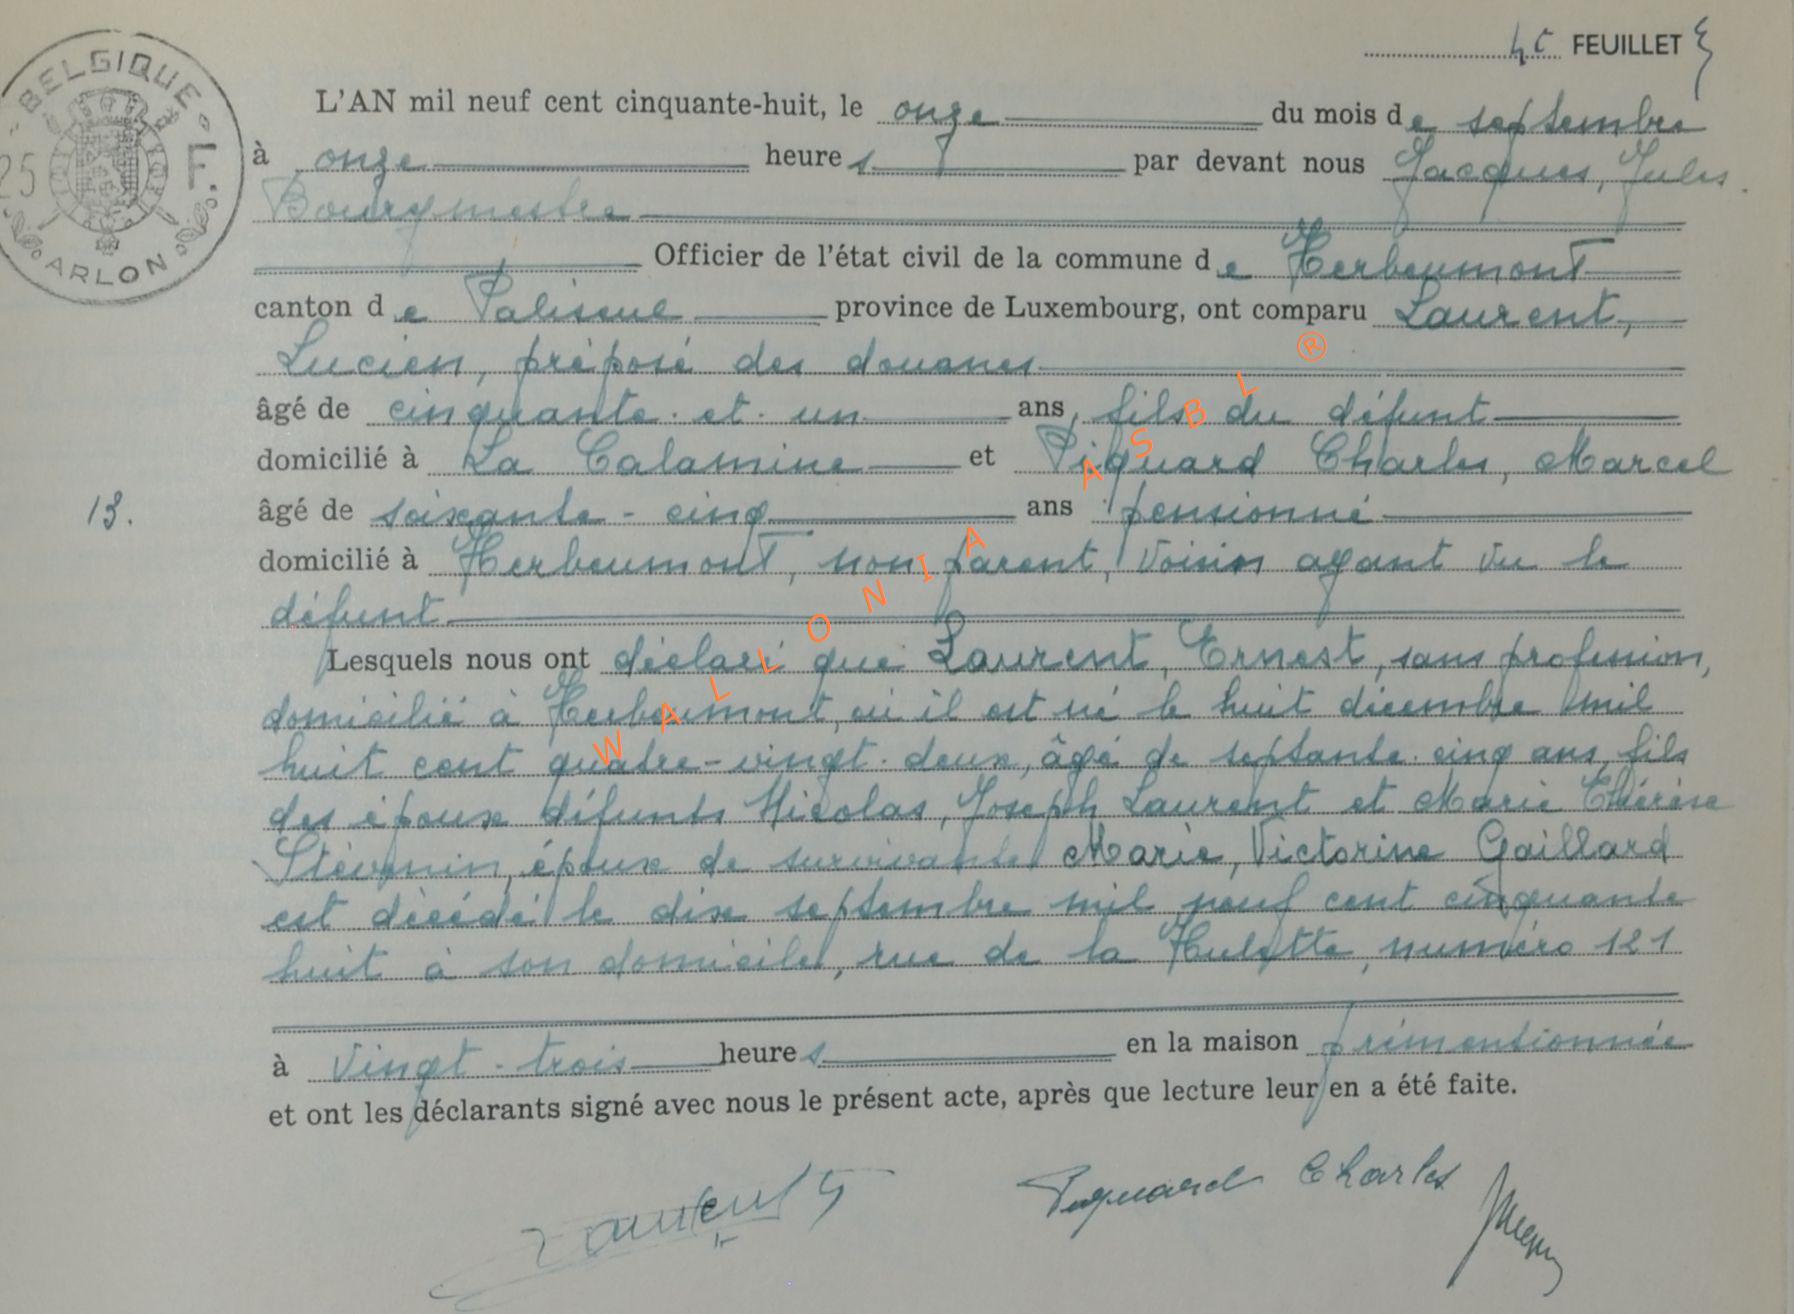 4e FEUILLET
BELGIQUE
25 F.
ARLON
L'AN mil neuf cent cinquante-huit, le onze du mois de septembre
à onze heures par devant nous Jacques, Jules
Bourgmestre
Officier de l'état civil de la commune de Herbeumont
canton de Paliseul province de Luxembourg, ont comparu Laurent,
Lucien, préposé des douanes
âgé de cinquante et un ans, fils du défunt
domicilié à La Calamine et Piquard Charles, Marcel
13.
âgé de soixante-cinq ans pensionné
domicilié à Herbeumont, non parent, voisin ayant vu le
défunt
Lesquels nous ont déclaré que Laurent, Ernest, sans profession,
domicilié à Herbeumont, où il est né le huit décembre mil
huit cent quatre-vingt-deux, âgé de septante-cinq ans, fils
des époux défunts Nicolas, Joseph Laurent et Marie Thérèse
Stévenin, époux de survivante Marie, Victorine Gaillard
est décédé le dix septembre mil neuf cent cinquante
huit à son domicile, rue de la Hulette, numéro 121
à vingt-trois heures en la maison prémentionnée
et ont les déclarants signé avec nous le présent acte, après que lecture leur en a été faite.
Laurent L Piquard Charles
WALLONIA ASBL ®